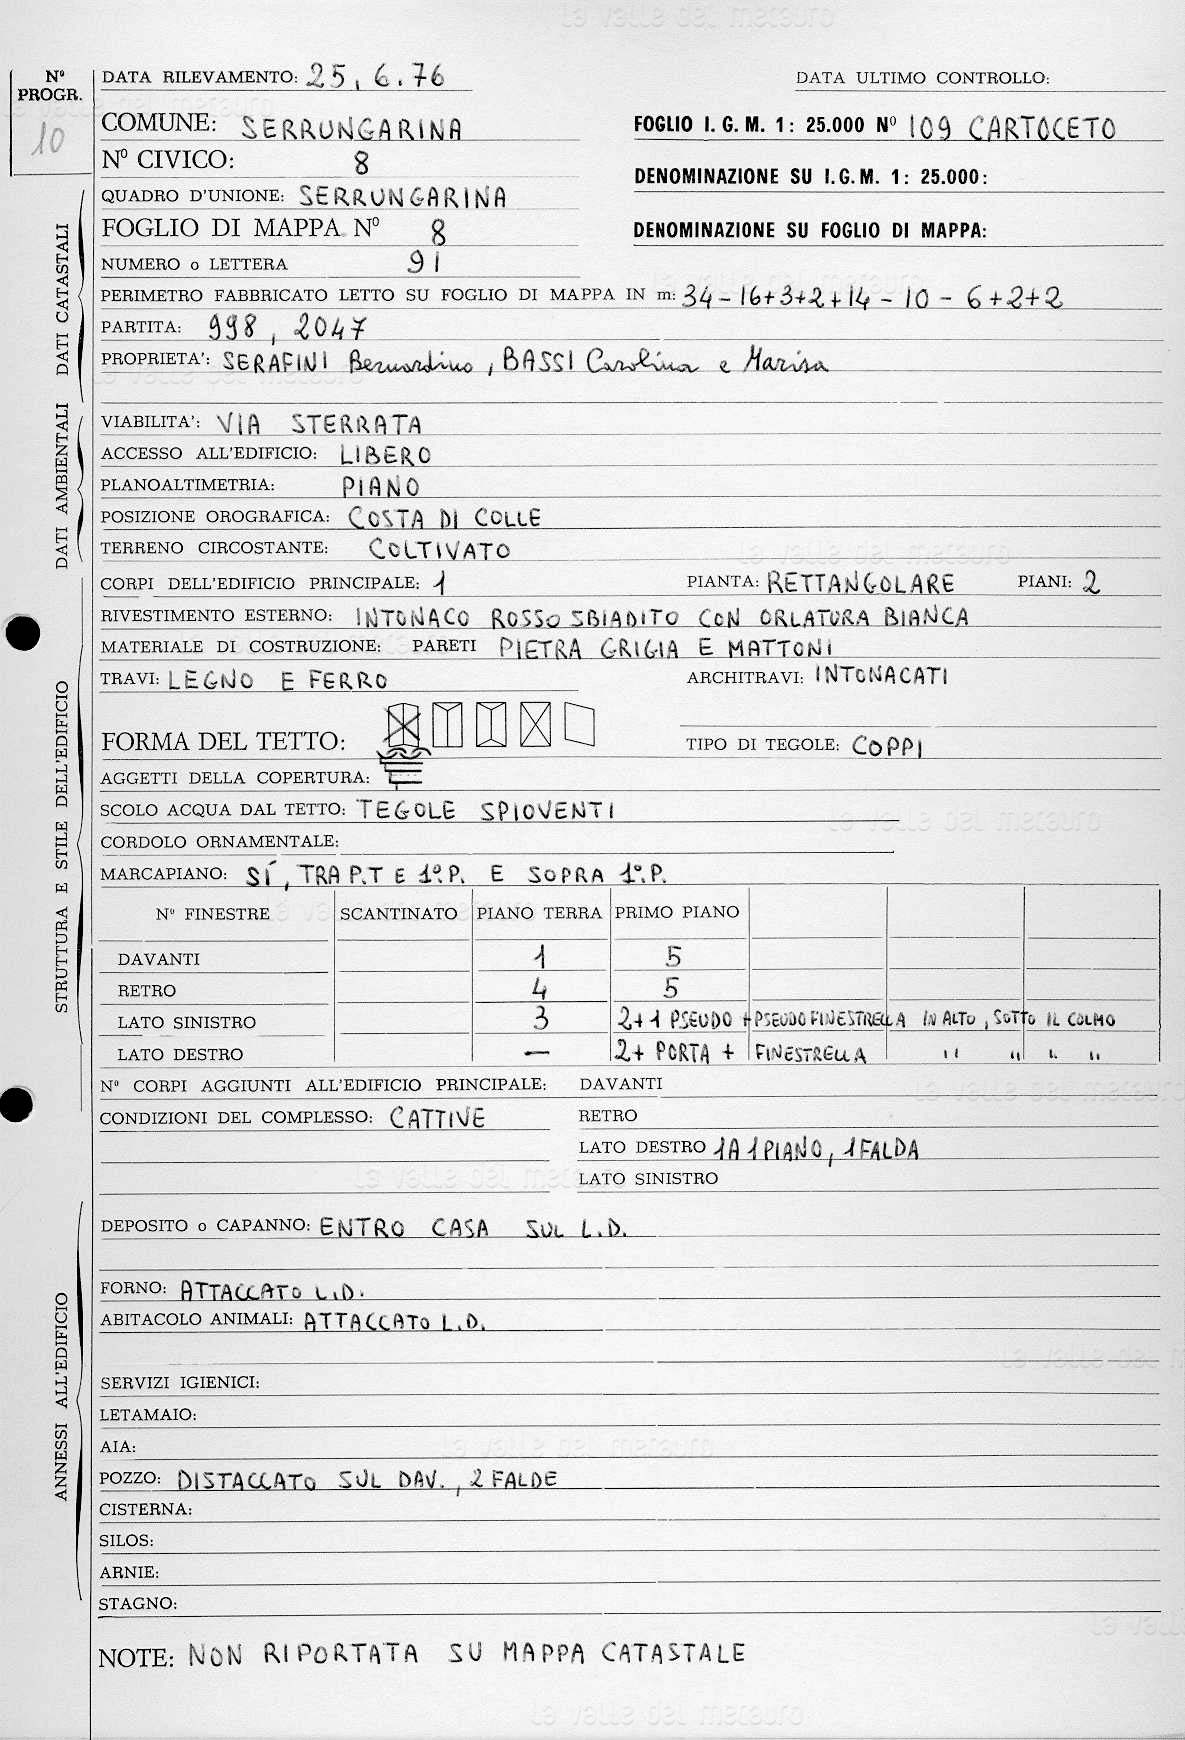 Nº PROGR. 10
DATA RILEVAMENTO: 25.6.76 DATA ULTIMO CONTROLLO:
COMUNE: SERRUNGARINA FOGLIO I.G.M. 1: 25.000 Nº 109 CARTOCETO
Nº CIVICO: 8 DENOMINAZIONE SU I.G.M. 1: 25.000:
QUADRO D'UNIONE: SERRUNGARINA
FOGLIO DI MAPPA Nº 8 DENOMINAZIONE SU FOGLIO DI MAPPA:
NUMERO o LETTERA 91
PERIMETRO FABBRICATO LETTO SU FOGLIO DI MAPPA IN m: 34-16+3+2+14-10-6+2+2
PARTITA: 998, 2047
PROPRIETA': SERAFINI Bernardino, BASSI Carolina e Marisa
DATI CATASTALI
VIABILITA': VIA STERRATA
ACCESSO ALL'EDIFICIO: LIBERO
PLANOALTIMETRIA: PIANO
POSIZIONE OROGRAFICA: COSTA DI COLLE
TERRENO CIRCOSTANTE: COLTIVATO
DATI AMBIENTALI
CORPI DELL'EDIFICIO PRINCIPALE: 1 PIANTA: RETTANGOLARE PIANI: 2
RIVESTIMENTO ESTERNO: INTONACO ROSSO SBIADITO CON ORLATURA BIANCA
MATERIALE DI COSTRUZIONE: PARETI PIETRA GRIGIA E MATTONI
TRAVI: LEGNO E FERRO ARCHITRAVI: INTONACATI
FORMA DEL TETTO: TIPO DI TEGOLE: COPPI
AGGETTI DELLA COPERTURA:
SCOLO ACQUA DAL TETTO: TEGOLE SPIOVENTI
CORDOLO ORNAMENTALE:
MARCAPIANO: SÍ, TRA P.T E 1º.P. E SOPRA 1º.P.
Nº FINESTRE SCANTINATO PIANO TERRA PRIMO PIANO
DAVANTI 1 5
RETRO 4 5
LATO SINISTRO 3 2+1 PSEUDO + PSEUDOFINESTRELLA IN ALTO, SOTTO IL COLMO
LATO DESTRO — 2+ PORTA + FINESTRELLA " " " "
STRUTTURA E STILE DELL'EDIFICIO
Nº CORPI AGGIUNTI ALL'EDIFICIO PRINCIPALE: DAVANTI
CONDIZIONI DEL COMPLESSO: CATTIVE RETRO
LATO DESTRO 1 A 1 PIANO, 1 FALDA
LATO SINISTRO
DEPOSITO o CAPANNO: ENTRO CASA SUL L.D.
FORNO: ATTACCATO L.D.
ABITACOLO ANIMALI: ATTACCATO L.D.
SERVIZI IGIENICI:
LETAMAIO:
AIA:
POZZO: DISTACCATO SUL DAV., 2 FALDE
CISTERNA:
SILOS:
ARNIE:
STAGNO:
ANNESSI ALL'EDIFICIO
NOTE: NON RIPORTATA SU MAPPA CATASTALE
la valle del metauro